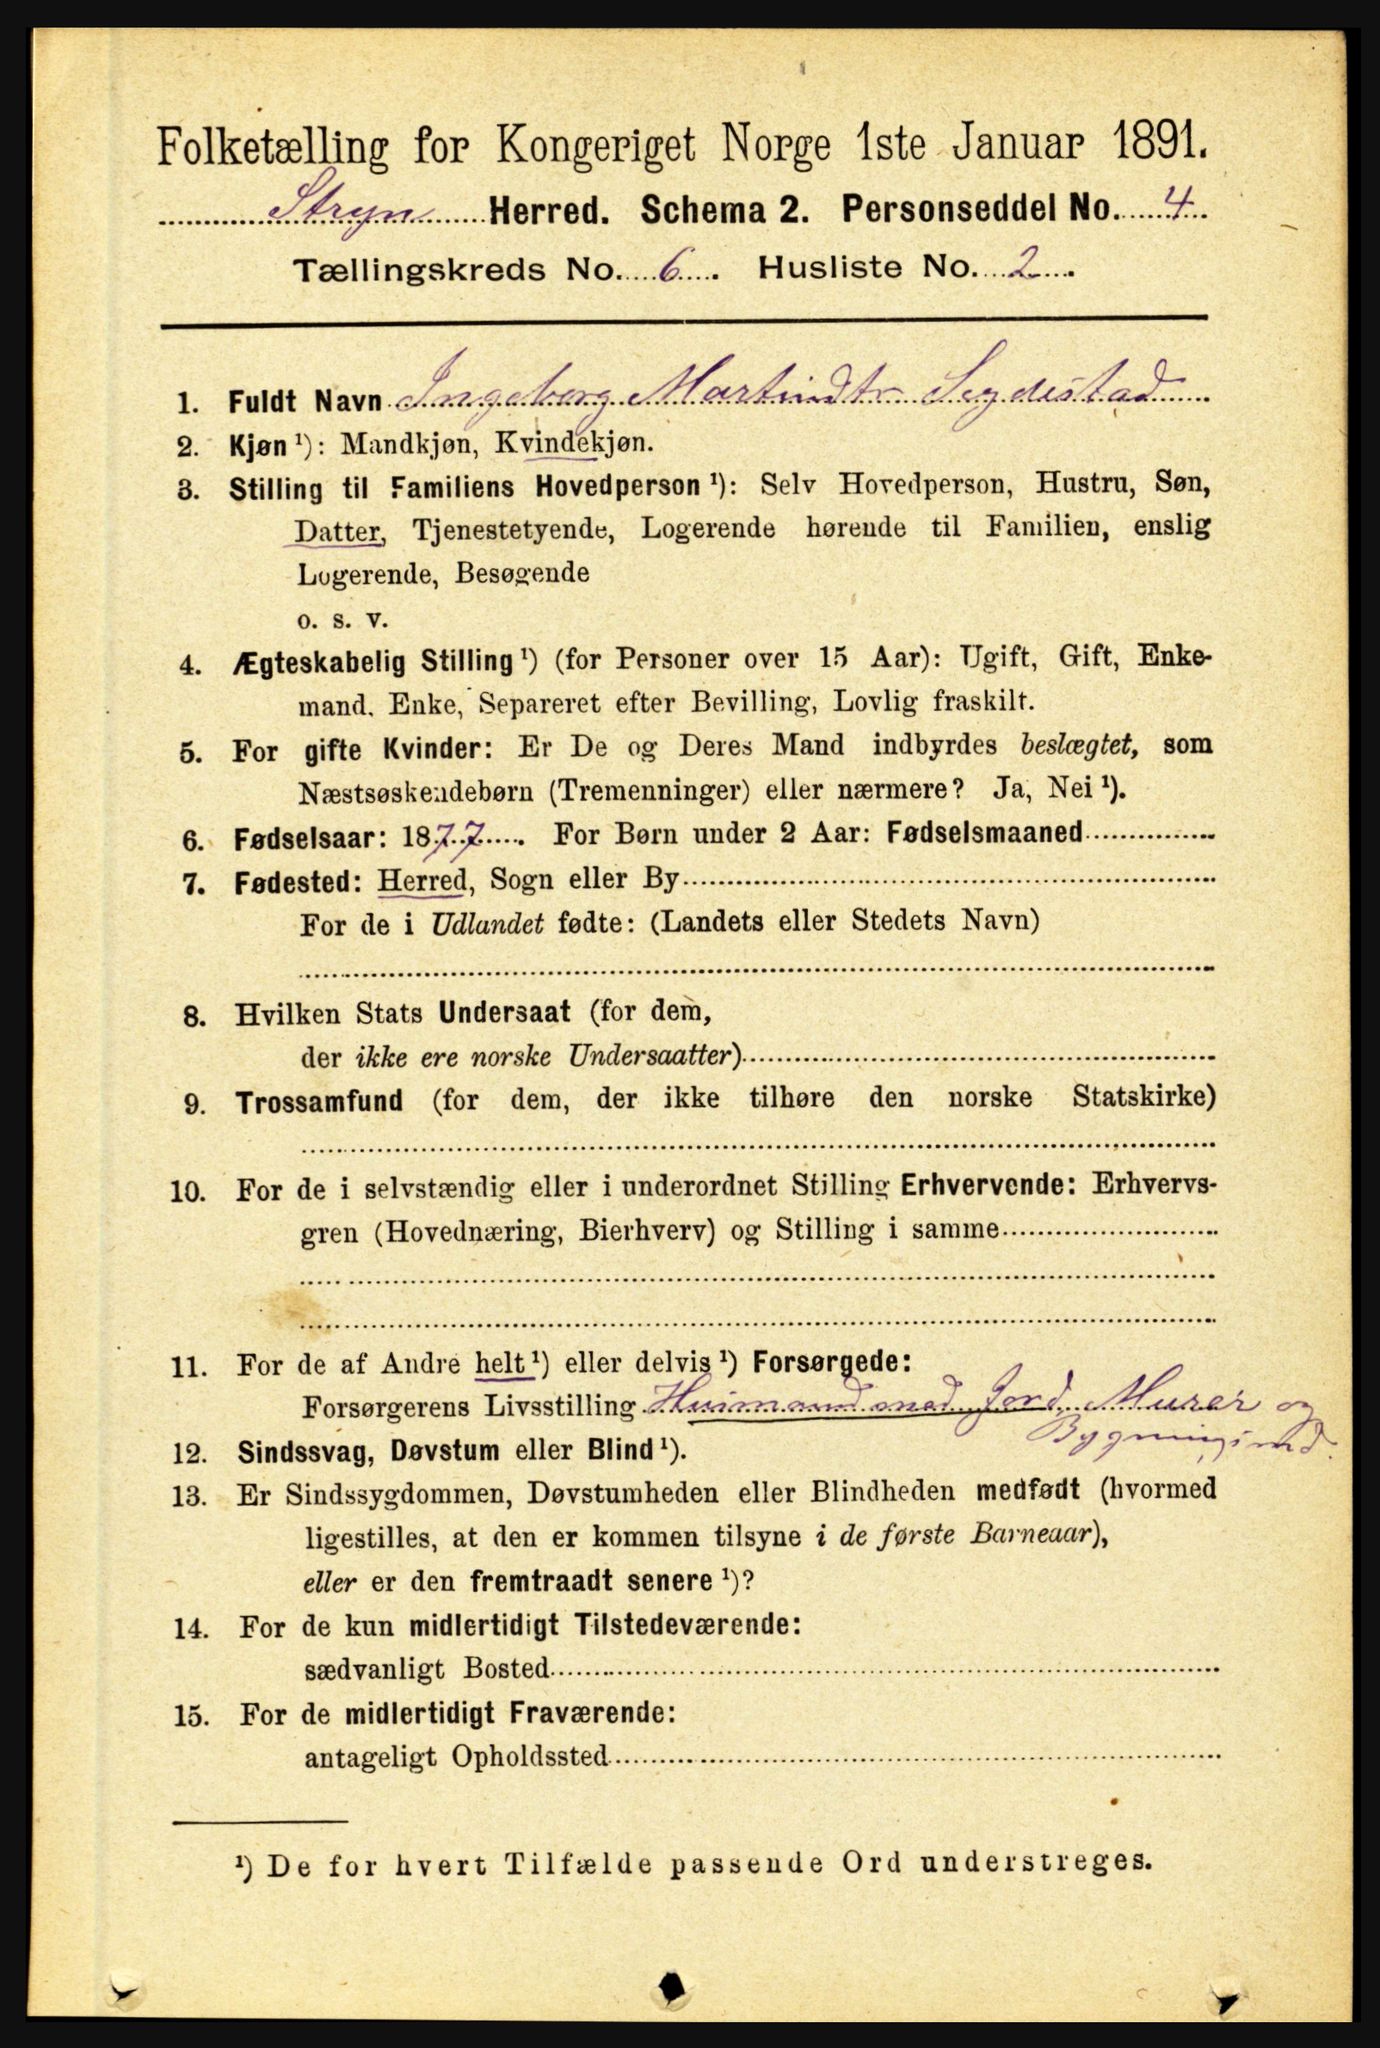 Folketælling for Kongeriget Norge 1ste Januar 1891.
Stryn Herred. Schema 2. Personseddel No. 4.
Tællingskreds No. 6. Husliste No. 2.
1. Fuldt Navn Ingeborg Martindtr. Segdestad
2. Kjøn ¹): Mandkjøn, Kvindekjøn.
3. Stilling til Familiens Hovedperson ¹): Selv Hovedperson, Hustru, Søn,
Datter, Tjenestetyende, Logerende hørende til Familien, enslig
Logerende, Besøgende
o. s. v.
4. Ægteskabelig Stilling ¹) (for Personer over 15 Aar): Ugift, Gift, Enke-
mand, Enke, Separeret efter Bevilling, Lovlig fraskilt.
5. For gifte Kvinder: Er De og Deres Mand indbyrdes beslægtet, som
Næstsøskendebørn (Tremenninger) eller nærmere? Ja, Nei ¹).
6. Fødselsaar: 1877. For Børn under 2 Aar: Fødselsmaaned
7. Fødested: Herred, Sogn eller By
For de i Udlandet fødte: (Landets eller Stedets Navn)
8. Hvilken Stats Undersaat (for dem,
der ikke ere norske Undersaatter)
9. Trossamfund (for dem, der ikke tilhøre den norske Statskirke)
10. For de i selvstændig eller i underordnet Stilling Erhvervende: Erhvervs-
gren (Hovednæring, Bierhverv) og Stilling i samme
11. For de af Andre helt ¹) eller delvis ¹) Forsørgede:
Forsørgerens Livsstilling Husmand med Jord, Murer og
Bygningsmd.
12. Sindssvag, Døvstum eller Blind ¹).
13. Er Sindssygdommen, Døvstumheden eller Blindheden medfødt (hvormed
ligestilles, at den er kommen tilsyne i de første Barneaar),
eller er den fremtraadt senere ¹)?
14. For de kun midlertidigt Tilstedeværende:
sædvanligt Bosted
15. For de midlertidigt Fraværende:
antageligt Opholdssted
¹) De for hvert Tilfælde passende Ord understreges.